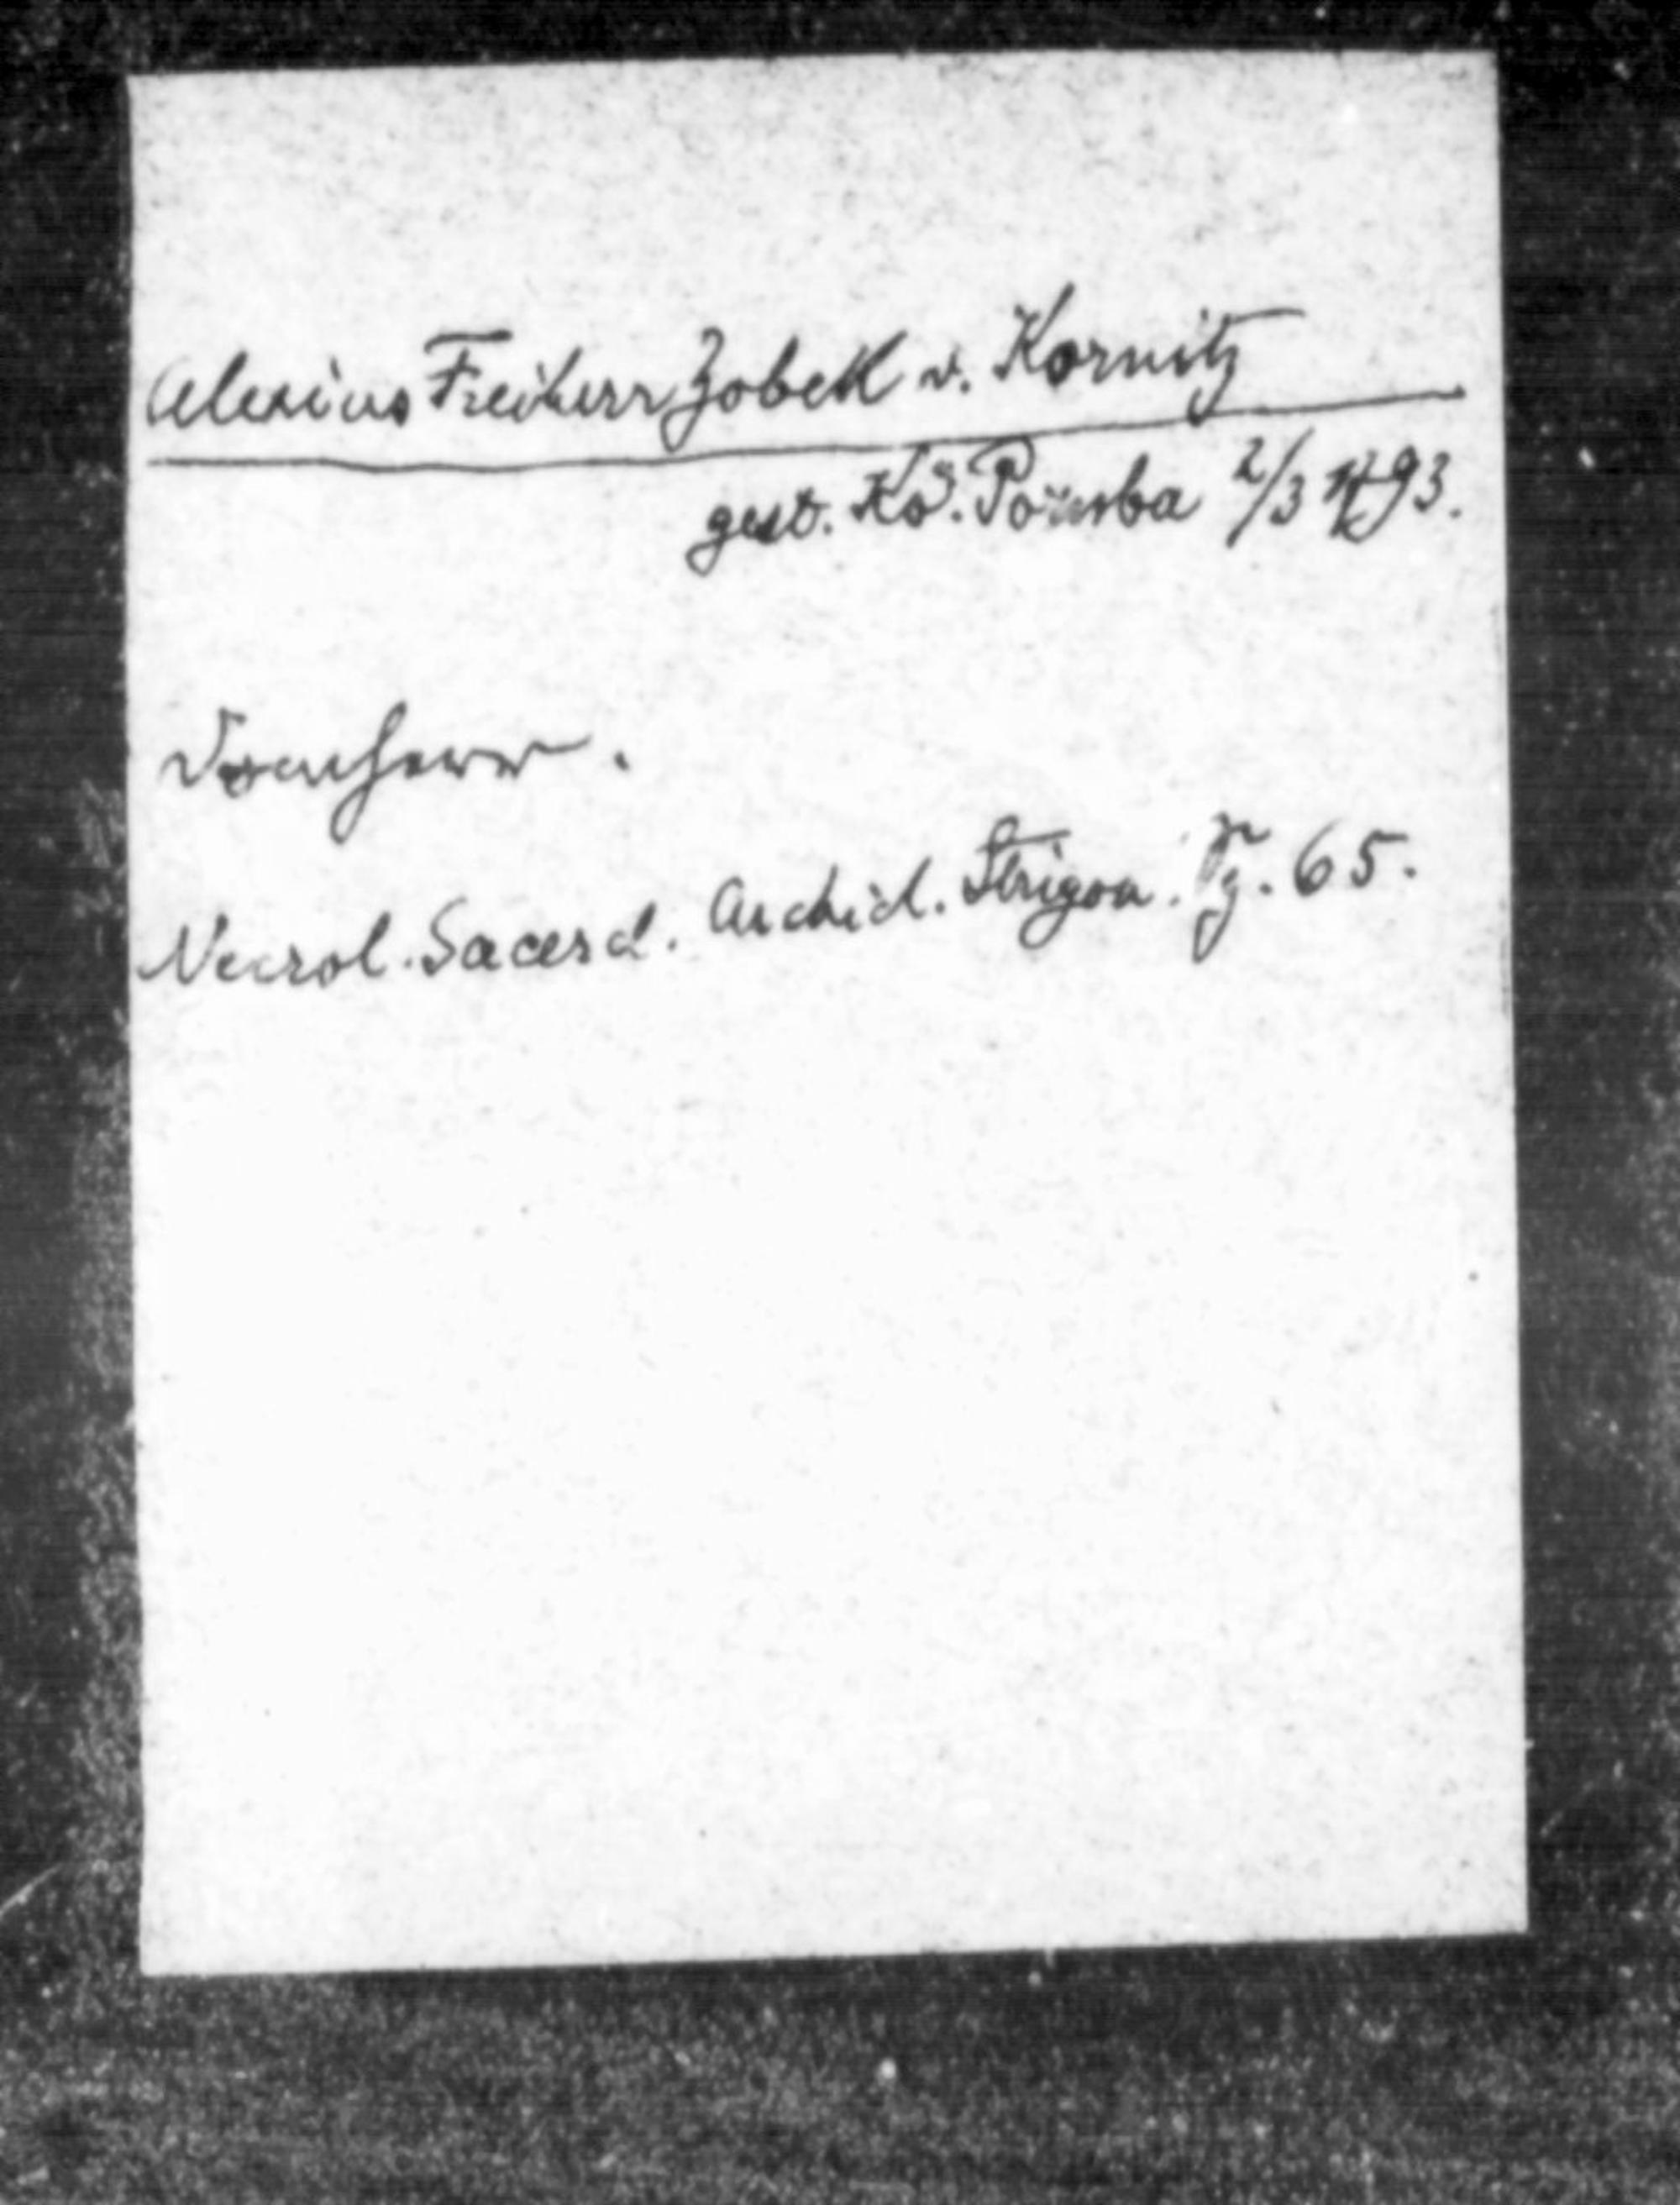 Alexius Freiherr Zobek v. Kornitz
gest. Kő. Poruba 2/3 1793.
Domherr.
Necrol. Sacerd. Archid. Strigon. Pg. 65.